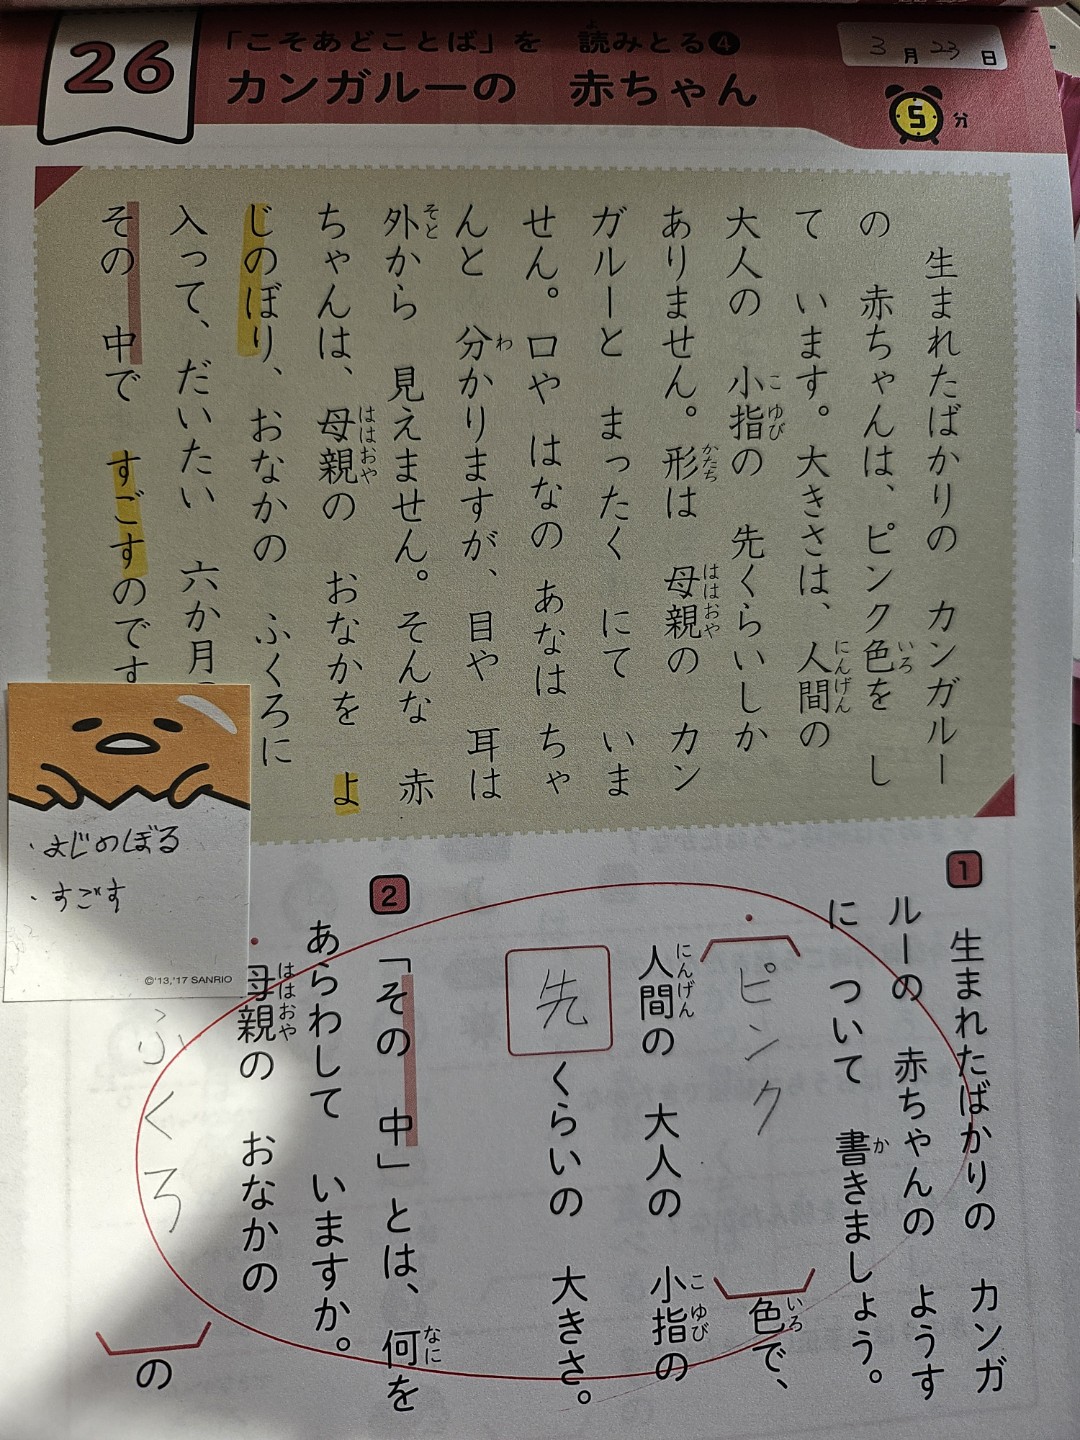 26
「こそあどことば」を 読みとる4
カンガルーの 赤ちゃん
3月23日
5分
生まれたばかりの カンガルー
の 赤ちゃんは、ピンク色を し
て います。大きさは、人間の
大人の 小指の 先くらいしか
ありません。形は 母親の カン
ガルーと まったく にて いま
せん。口や はなの あなは ちゃ
んと 分かりますが、目や 耳は
外から 見えません。そんな 赤
ちゃんは、母親の おなかを よ
じのぼり、おなかの ふくろに
入って、だいたい 六か月
その 中で すごすのです
・よじのぼる
・すごす
©'13,'17 SANRIO
1
生まれたばかりの カンガ
ルーの 赤ちゃんの ようす
に ついて 書きましょう。
ピンク 色で、
人間の 大人の 小指の
先 くらいの 大きさ。
2
「その 中」とは、何を
あらわして いますか。
母親の おなかの
ふくろ の